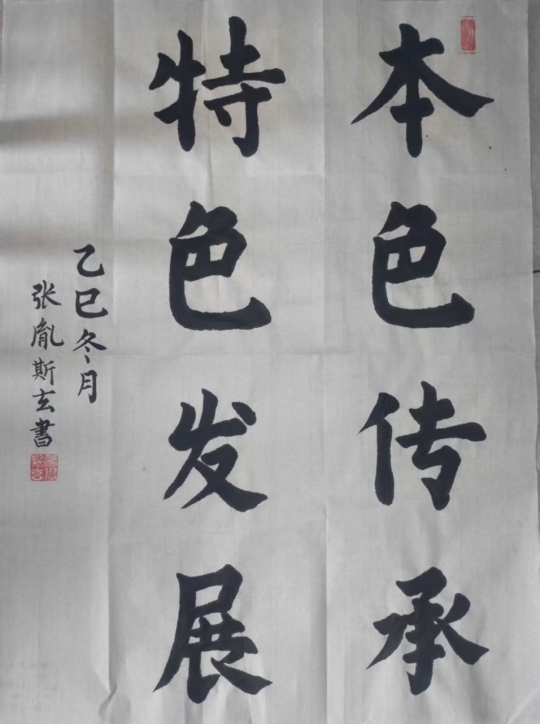 本色传承
特色发展
乙巳冬月
张胤斯玄書